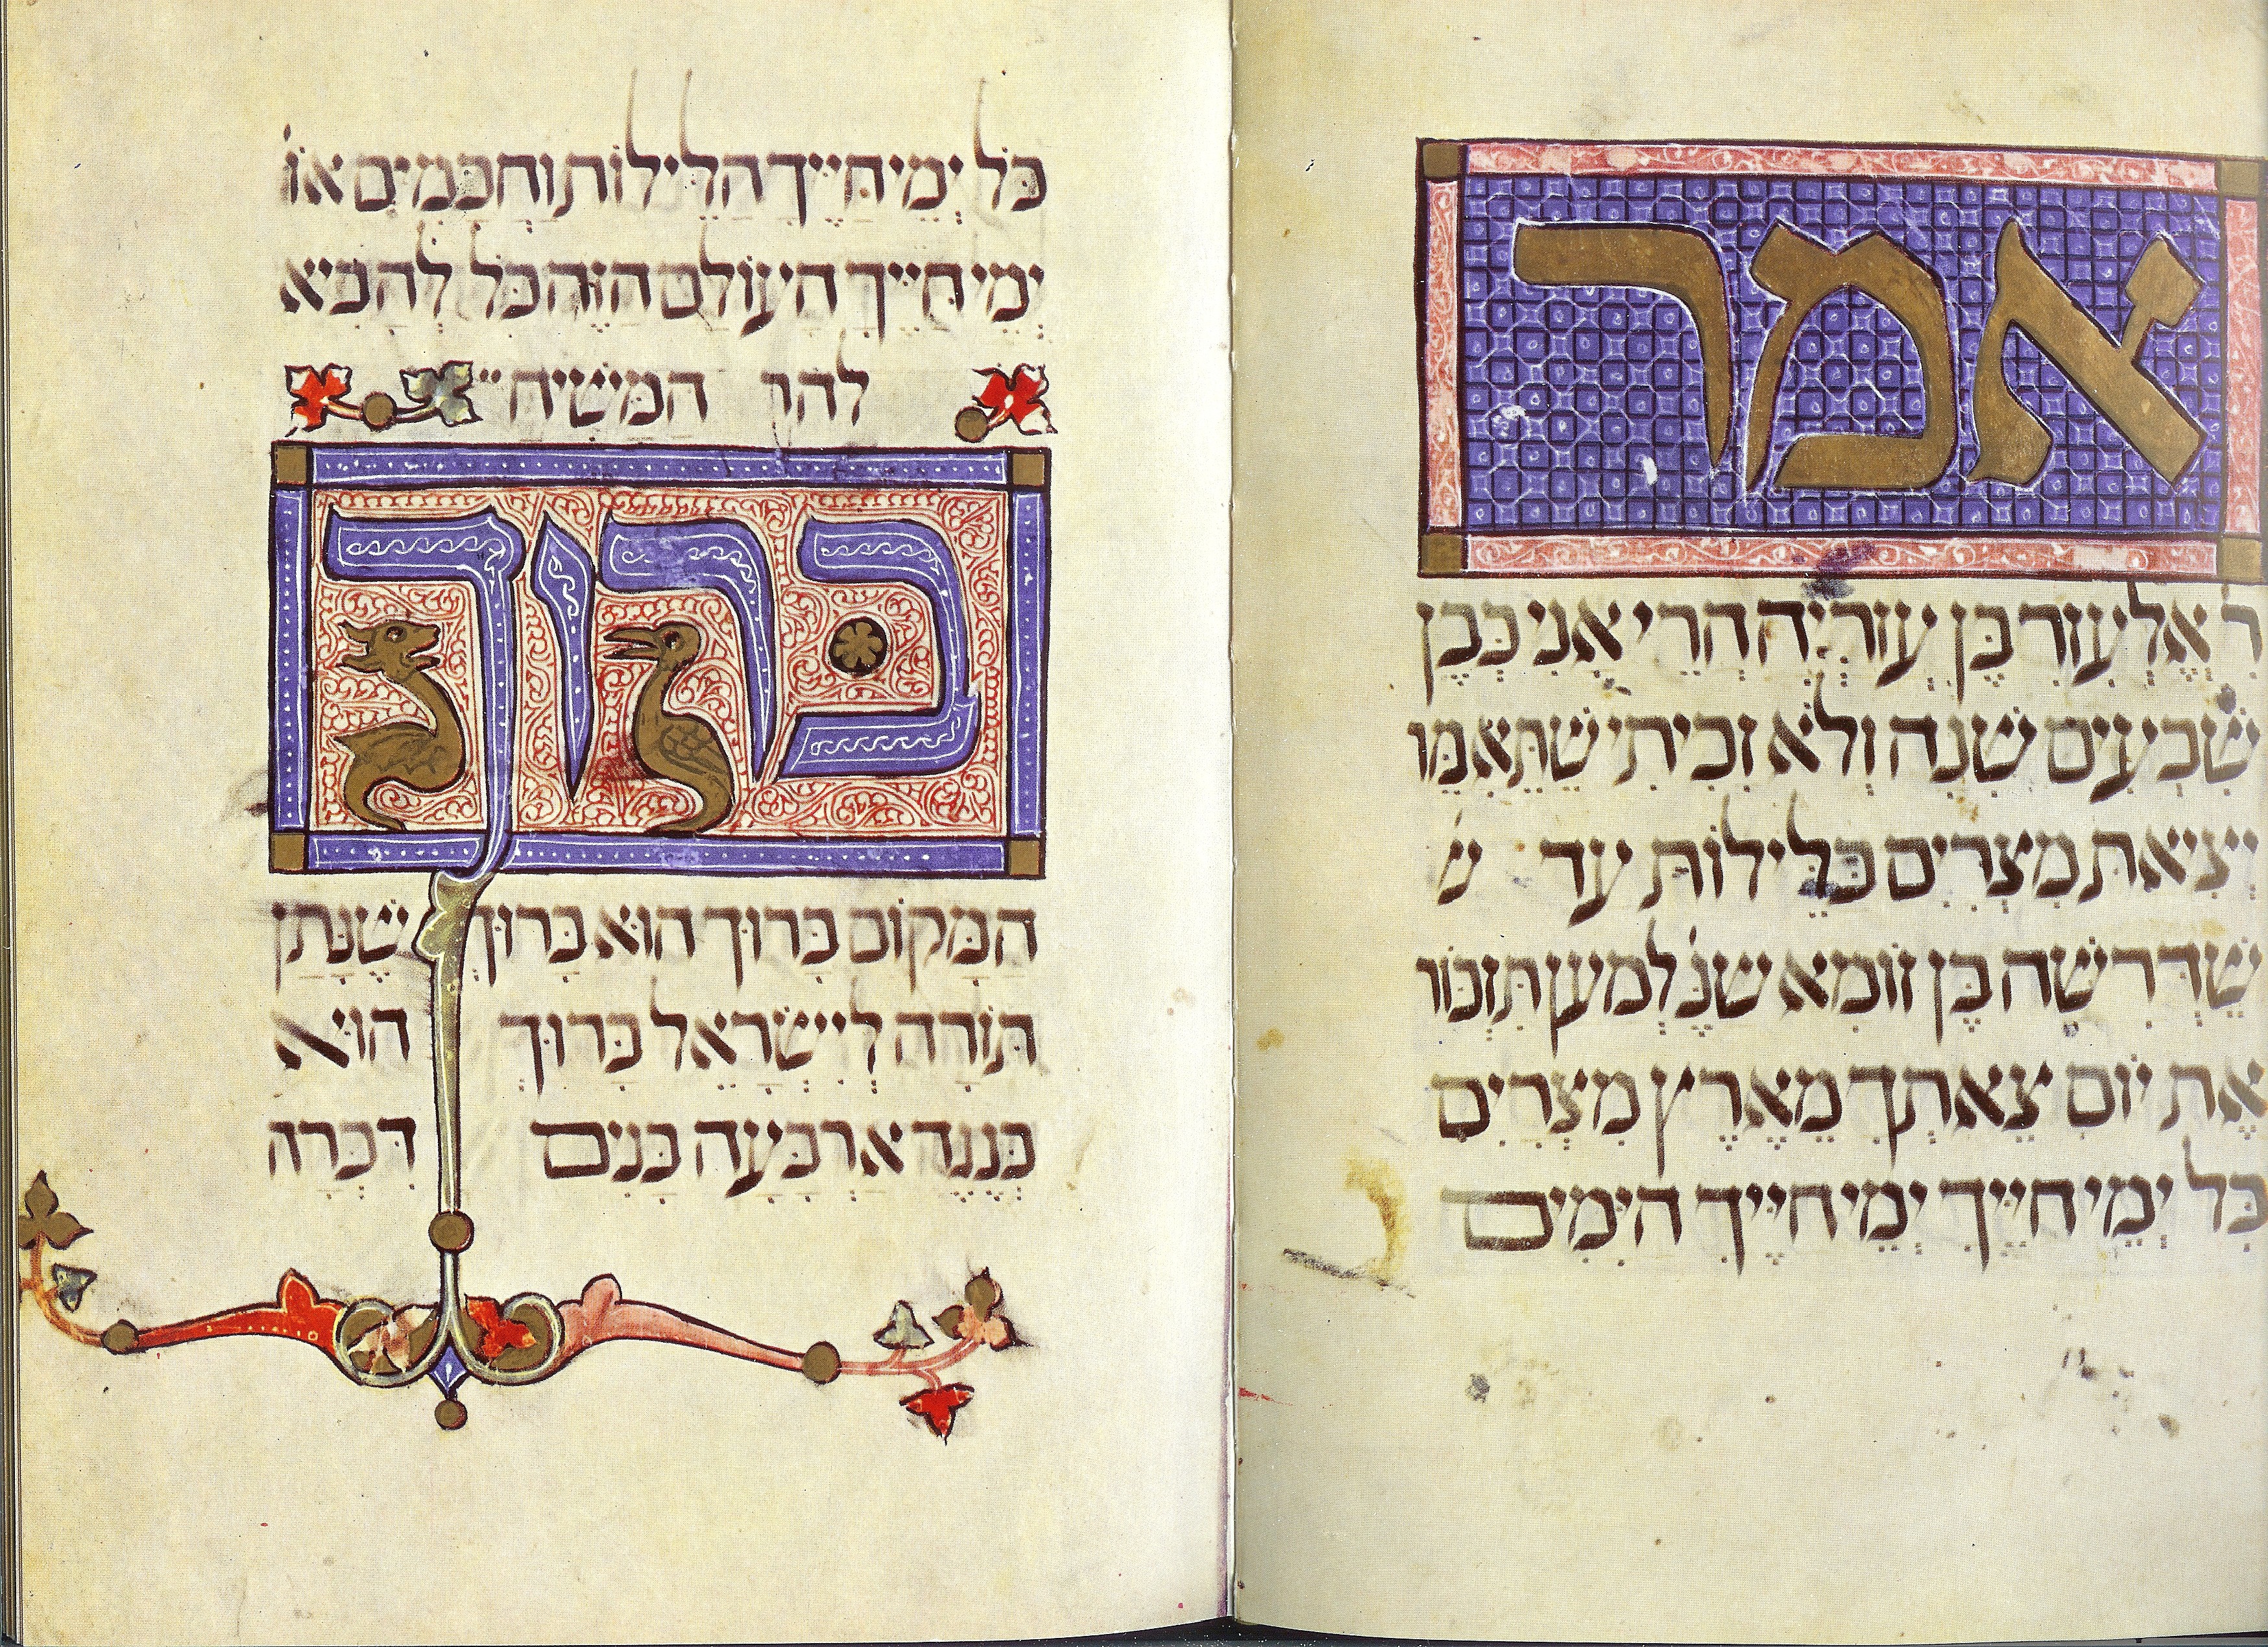 אמר
ר אֶלְעָזָר בֶּן עֲזַרְיָה הֲרֵי אֲנִי כְּבֶן
שִׁבְעִים שָׁנָה וְלֹא זָכִיתִי שֶׁתֵּאָמֵר
יְצִיאַת מִצְרַיִם בַּלֵּילוֹת עַד ש
שֶׁדְּרָשָׁהּ בֶּן זוֹמָא שנ לְמַעַן תִּזְכּוֹר
אֶת יוֹם צֵאתְךָ מֵאֶרֶץ מִצְרַיִם
כָּל יְמֵי חַיֶּיךָ יְמֵי חַיֶּיךָ הַיָּמִים
כֹּל יְמֵי חַיֶּיךָ הַלֵּילוֹת וַחֲכָמִים או
יְמֵי חַיֶּיךָ הָעוֹלָם הַזֶּה הַכֹּל לְהָבִיא
המשיח
ברוך
הַמָּקוֹם בָּרוּךְ הוּא בָּרוּךְ שֶׁנָּתַן
תּוֹרָה לְיִשְׂרָאֵל בָּרוּךְ הוּא
כְּנֶגֶד אַרְבָּעָה בָנִים דִּבְּרָה